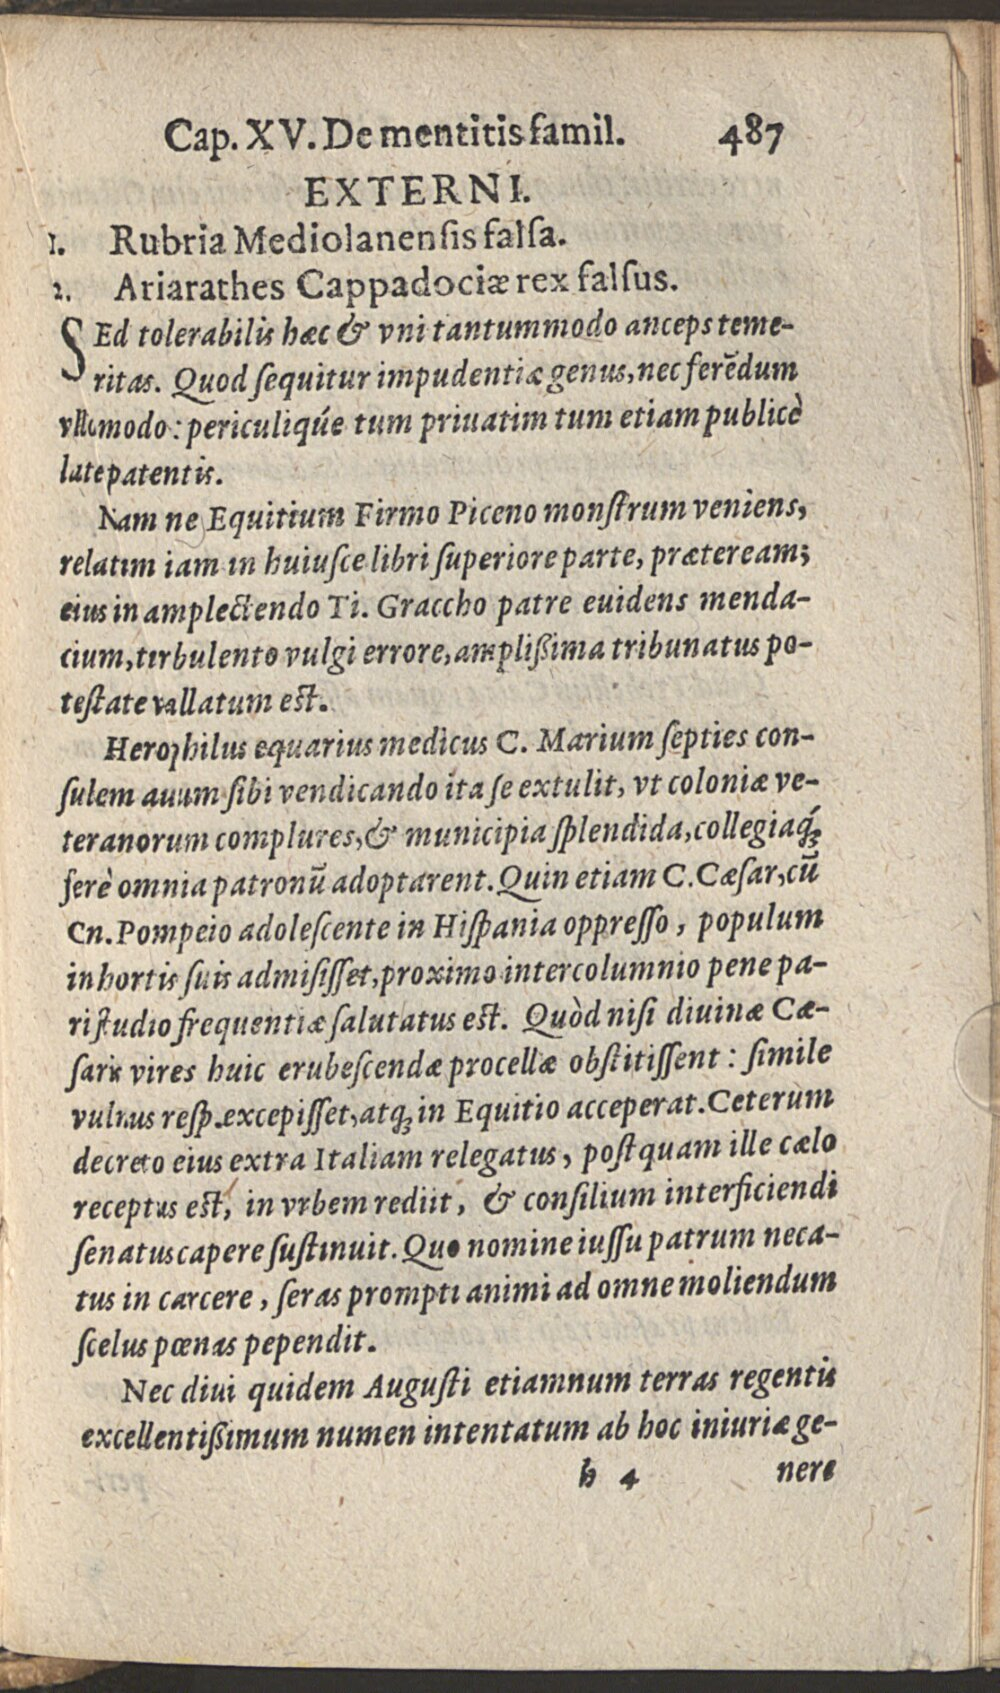 Cap. XV. De mentitis famil. 487
EXTERNI.
1. Rubria Mediolanensis falsa.
2. Ariarathes Cappadociæ rex falsus.
SEd tolerabilis hæc & vni tantummodo anceps teme-
ritas. Quod sequitur impudentiæ genus, nec ferēdum
vllo modo: periculiq́ue tum priuatim tum etiam publicè
late patentis.
Nam ne Equitium Firmo Piceno monstrum veniens,
relatum iam in huiusce libri superiore parte, præteream;
eius in amplectendo Ti. Graccho patre euidens menda-
cium, turbulento vulgi errore, amplißima tribunatus po-
testate vallatum est.
Herophilus equarius medicus C. Marium septies con-
sulem auum sibi vendicando ita se extulit, vt coloniæ ve-
teranorum complures, & municipia splendida, collegiaq́;
ferè omnia patronū adoptarent. Quin etiam C. Cæsar, cū
Cn. Pompeio adolescente in Hispania oppresso, populum
in hortis suis admisisset, proximo intercolumnio pene pa-
ri studio frequentiæ salutatus est. Quòd nisi diuinæ Cæ-
saris vires huic erubescendæ procellæ obstitissent: simile
vulnus resp. excepisset, atq; in Equitio acceperat. Ceterum
decreto eius extra Italiam relegatus, postquam ille cælo
receptus est, in vrbem rediit, & consilium interficiendi
senatus capere sustinuit. Quo nomine iussu patrum neca-
tus in carcere, seras prompti animi ad omne moliendum
scelus pœnas pependit.
Nec diui quidem Augusti etiamnum terras regentis
excellentißimum numen intentatum ab hoc iniuriæ ge-
h 4 nere